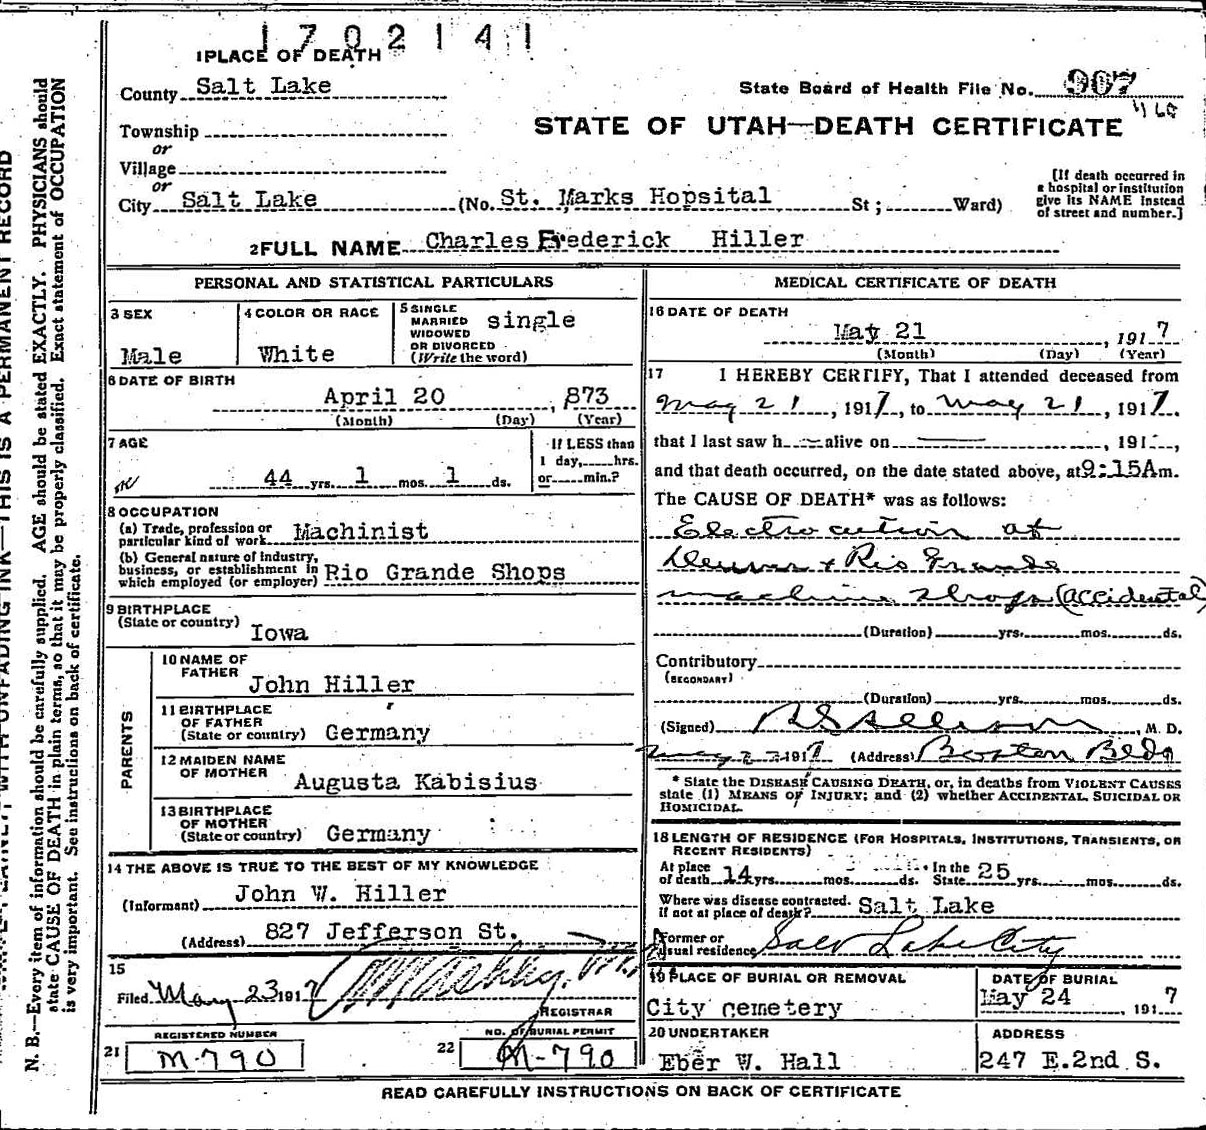 1702141
1 PLACE OF DEATH
County Salt Lake
State Board of Health File No. 907
Township
or
Village
or
City Salt Lake (No. St. Marks Hopsital St; Ward)
STATE OF UTAH—DEATH CERTIFICATE
[If death occurred in
a hospital or institution
give its NAME instead
of street and number.]
2 FULL NAME Charles Frederick Hiller
PERSONAL AND STATISTICAL PARTICULARS
3 SEX
Male
4 COLOR OR RACE
White
5 SINGLE
MARRIED
WIDOWED
OR DIVORCED
(Write the word)
single
6 DATE OF BIRTH
April 20, 873
(Month) (Day) (Year)
7 AGE
44 yrs. 1 mos. 1 ds.
If LESS than
1 day, hrs.
or min.?
8 OCCUPATION
(a) Trade, profession or
particular kind of work Machinist
(b) General nature of industry,
business, or establishment in
which employed (or employer) Rio Grande Shops
9 BIRTHPLACE
(State or country)
Iowa
PARENTS
10 NAME OF
FATHER
John Hiller
11 BIRTHPLACE
OF FATHER
(State or country) Germany
12 MAIDEN NAME
OF MOTHER
Augusta Kabisius
13 BIRTHPLACE
OF MOTHER
(State or country) Germany
14 THE ABOVE IS TRUE TO THE BEST OF MY KNOWLEDGE
(Informant) John W. Hiller
(Address) 827 Jefferson St.
15
Filed May 23 1917
REGISTRAR
REGISTERED NUMBER
21 M-790
NO. OF BURIAL PERMIT
22 M-790
MEDICAL CERTIFICATE OF DEATH
16 DATE OF DEATH
May 21, 1917
(Month) (Day) (Year)
17 I HEREBY CERTIFY, That I attended deceased from
May 21, 1917, to May 21, 1917.
that I last saw h alive on , 191 ,
and that death occurred, on the date stated above, at 9:15A m.
The CAUSE OF DEATH* was as follows:
Electrocution at
Denver & Rio Grande
machine shops (accidental)
(Duration) yrs. mos. ds.
Contributory
(SECONDARY)
(Duration) yrs. mos. ds.
(Signed) , M. D.
May 22 1917 (Address) Boston Bldg
* State the DISEASE CAUSING DEATH, or, in deaths from VIOLENT CAUSES
state (1) MEANS OF INJURY; and (2) whether ACCIDENTAL SUICIDAL OR
HOMICIDAL.
18 LENGTH OF RESIDENCE (FOR HOSPITALS, INSTITUTIONS, TRANSIENTS, OR
RECENT RESIDENTS)
At place
of death 14 yrs. mos. ds. In the
State 25 yrs. mos. ds.
Where was disease contracted.
if not at place of death? Salt Lake
Former or
usual residence Salt Lake City
19 PLACE OF BURIAL OR REMOVAL
City cemetery
DATE OF BURIAL
May 24, 1917
20 UNDERTAKER
Eber W. Hall
ADDRESS
247 E.2nd S.
READ CAREFULLY INSTRUCTIONS ON BACK OF CERTIFICATE
THIS IS A PERMANENT RECORD
N. B.—Every item of information should be carefully supplied. AGE should be stated EXACTLY. PHYSICIANS should
state CAUSE OF DEATH in plain terms, so that it may be properly classified. Exact statement of OCCUPATION
is very important. See instructions on back of certificate.